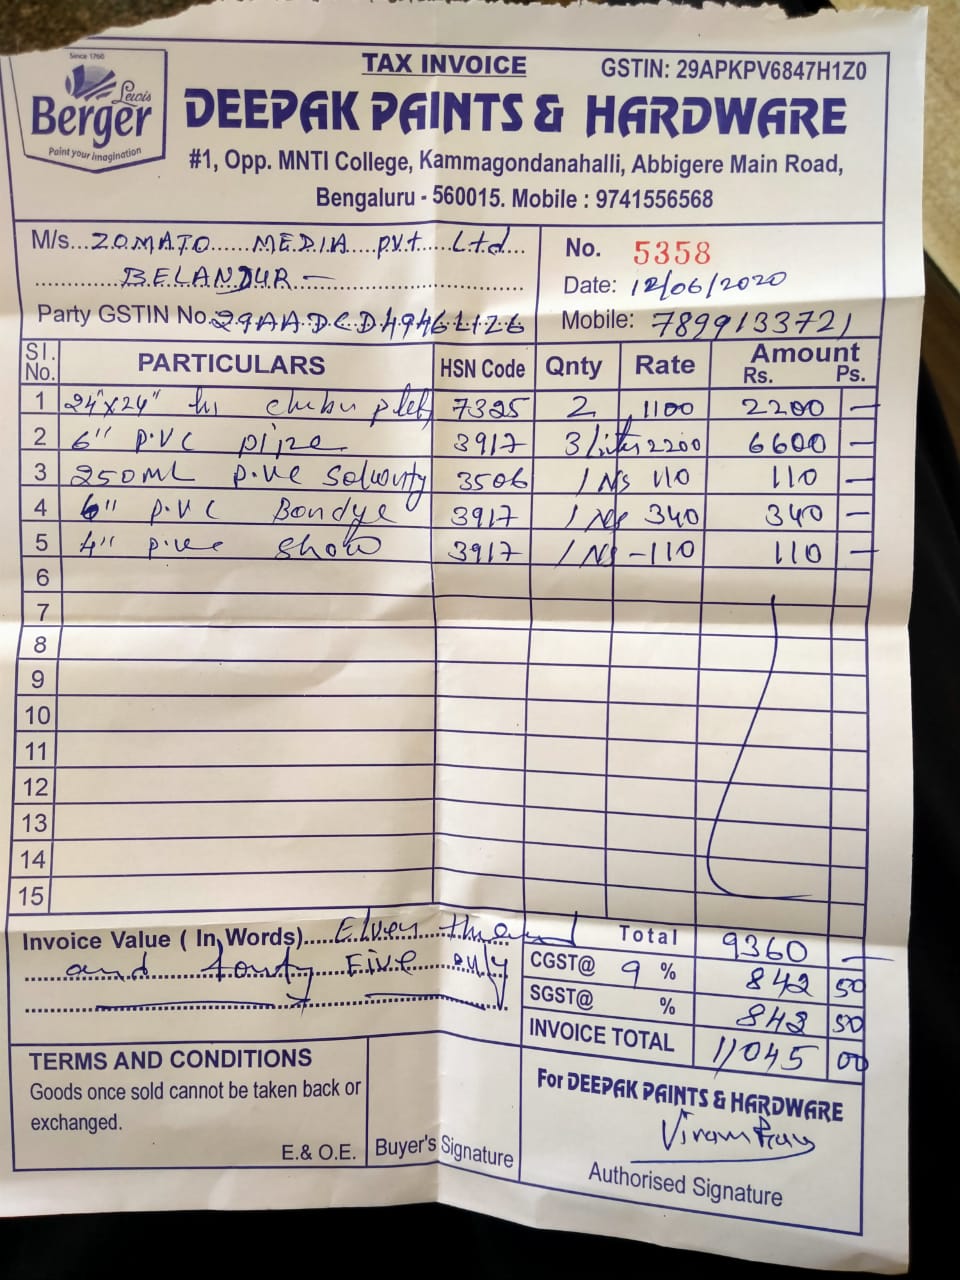 Since 1760
Lewis
Berger
Paint your imagination
TAX INVOICE GSTIN: 29APKPV6847H1Z0
DEEPAK PAINTS & HARDWARE
#1, Opp. MNTI College, Kammagondanahalli, Abbigere Main Road,
Bengaluru - 560015. Mobile : 9741556568
M/s... ZOMATO MEDIA pvt Ltd
BELANDUR -
No. 5358
Date: 12/06/2020
Party GSTIN No. 29AADCD4946L1Z6
Mobile: 7899133721
Sl. No. PARTICULARS HSN Code Qnty Rate Amount Rs. Ps.
1 24"x24" 7325 2 1100 2200 —
2 6" p.vc pipe 3917 3 2200 6600 —
3 250ML p.vc 3506 1 Ns 110 110 —
4 6" p.vc 3917 1 Ns 340 340 —
5 4" p.vc 3917 1 Ns -110 110 —
6
7
8
9
10
11
12
13
14
15
Invoice Value ( In Words) Elven
and Five only
Total 9360 —
CGST@ 9 % 842 50
SGST@ % 842 50
INVOICE TOTAL 11045 00
TERMS AND CONDITIONS
Goods once sold cannot be taken back or
exchanged.
E.& O.E.
Buyer's Signature
For DEEPAK PAINTS & HARDWARE
Authorised Signature